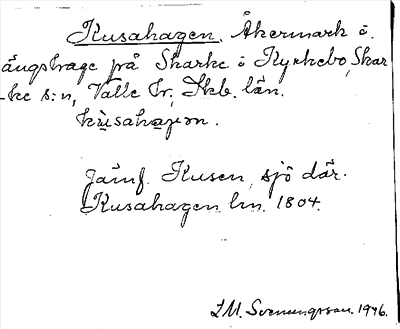 Kusahagen. Åkermark o.
ängshage på Skarke i Kyrkebo, Skar
-ke s:n, Valle hr, Skb. län.
kùsahagɘn.
Jämf. Kusen, sjö där.
Kusahagen lm. 1804.
I.M. Svenungsson. 1946.